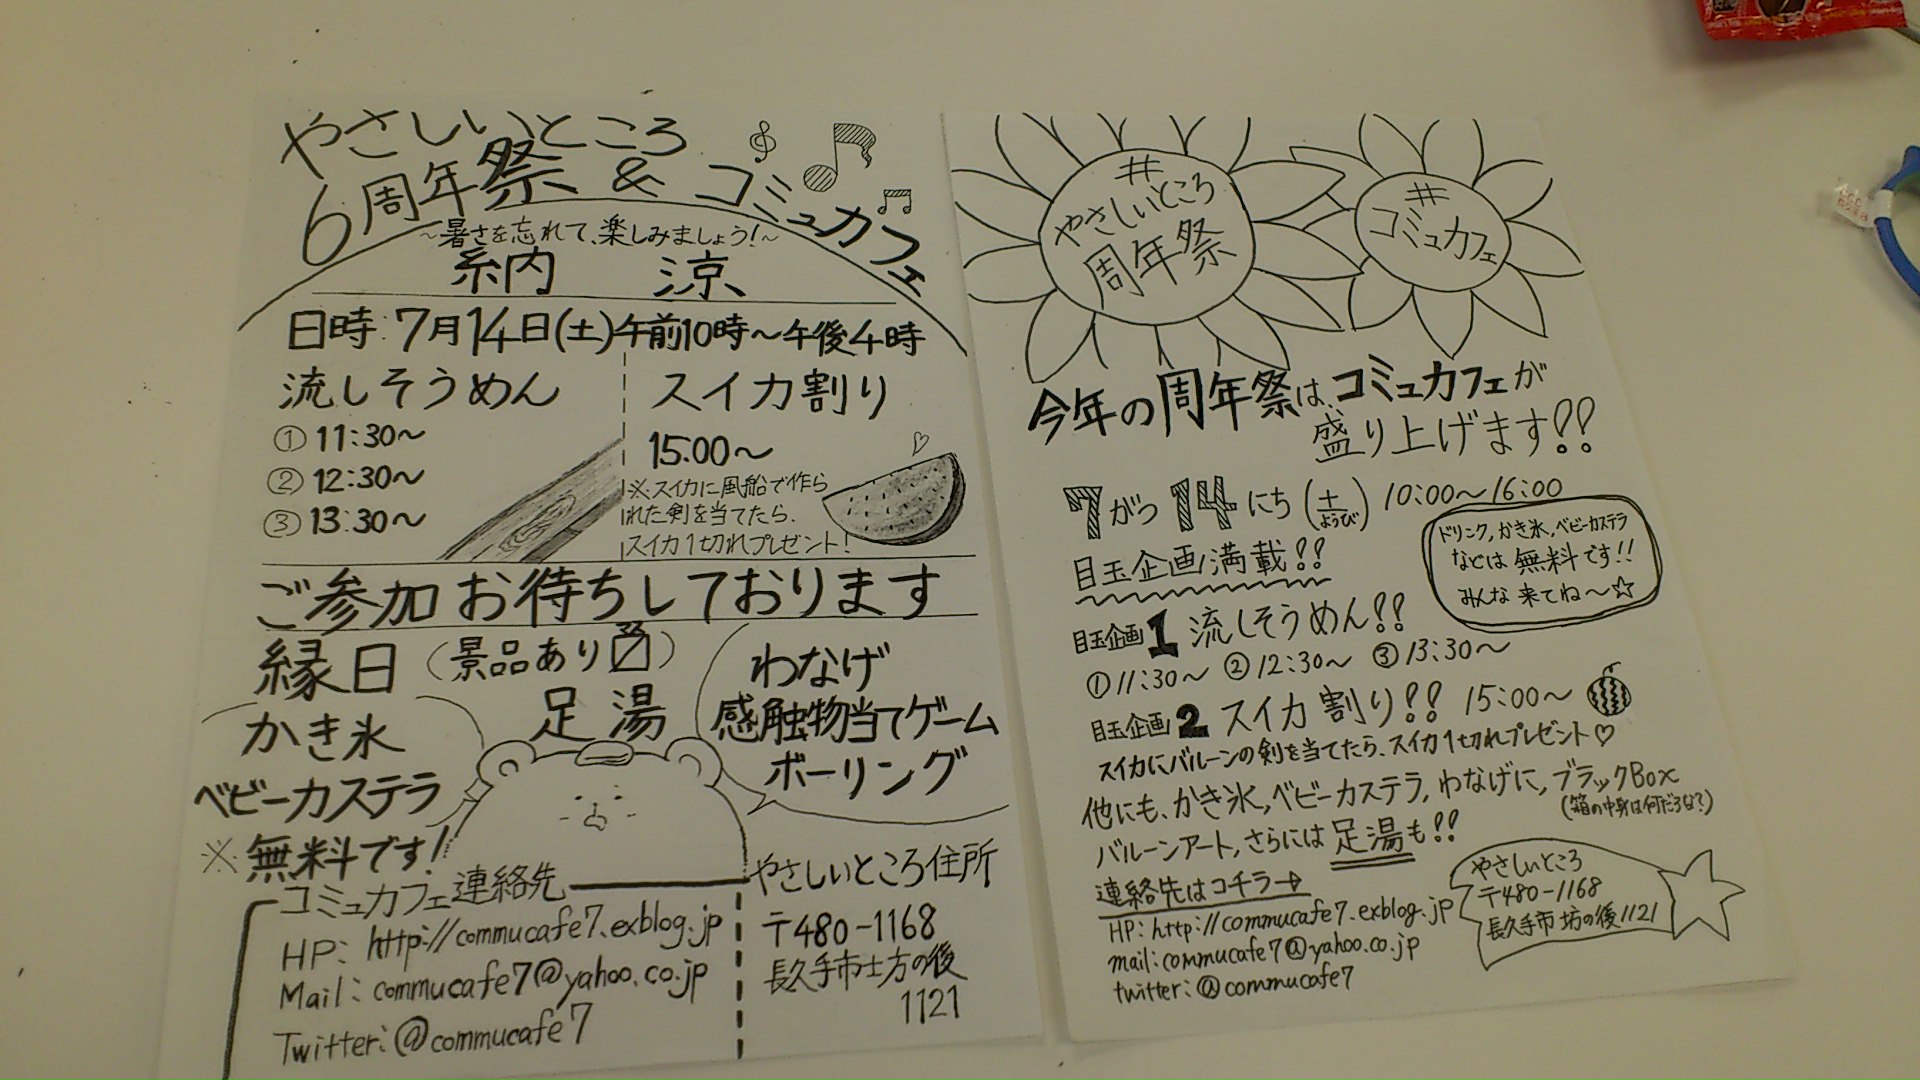 やさしいところ
6周年祭 & コミュカフェ
～暑さを忘れて、楽しみましょう!～
納涼
日時:7月14日(土)午前10時～午後4時
流しそうめん
① 11:30～
② 12:30～
③ 13:30～
スイカ割り
15:00～
※スイカに風船で作ら
れた剣を当てたら、
スイカ1切れプレゼント!
ご参加お待ちしております
縁日(景品あり)
足湯
かき氷
ベビーカステラ
※無料です!
わなげ
感触物当てゲーム
ボーリング
コミュカフェ連絡先
HP: http://commucafe7.exblog.jp
Mail: commucafe7@yahoo.co.jp
Twitter:@commucafe7
やさしいところ住所
〒480-1168
長久手市坊の後
1121
#
やさしいところ
周年祭
#
コミュカフェ
今年の周年祭は、コミュカフェが
盛り上げます!!
7がつ14にち(土ようび) 10:00～16:00
ドリンク,かき氷,ベビーカステラ
などは無料です!!
みんな来てね～☆
目玉企画満載!!
目玉企画1 流しそうめん!!
①11:30～ ②12:30～ ③13:30～
目玉企画2 スイカ割り!! 15:00～
スイカにバルーンの剣を当てたら、スイカ1切れプレゼント♡
他にも、かき氷,ベビーカステラ,わなげに,ブラックBox
(箱の中身は何だろな?)
バルーンアート,さらには足湯も!!
連絡先はコチラ→
HP: http://commucafe7.exblog.jp
mail:commucafe7@yahoo.co.jp
twitter:@commucafe7
やさしいところ
〒480-1168
長久手市坊の後1121